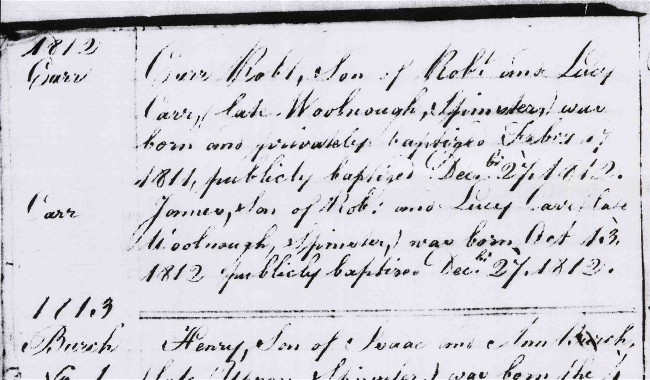 1812
Carr Carr Robt, Son of Robt and Lucy
Carr, (late Woolnough, Spinster,) was
born and privately baptized Feby 17
1811, publicly baptized Decbr 27, 1812.
Carr James, Son of Robt and Lucy Carr (late
Woolnough, Spinster,) was born Oct 13,
1812 publicly baptized Decbr 27, 1812.
1813
Burch Henry, Son of Isaac and Ann Burch,
(late Spinster,) was born the